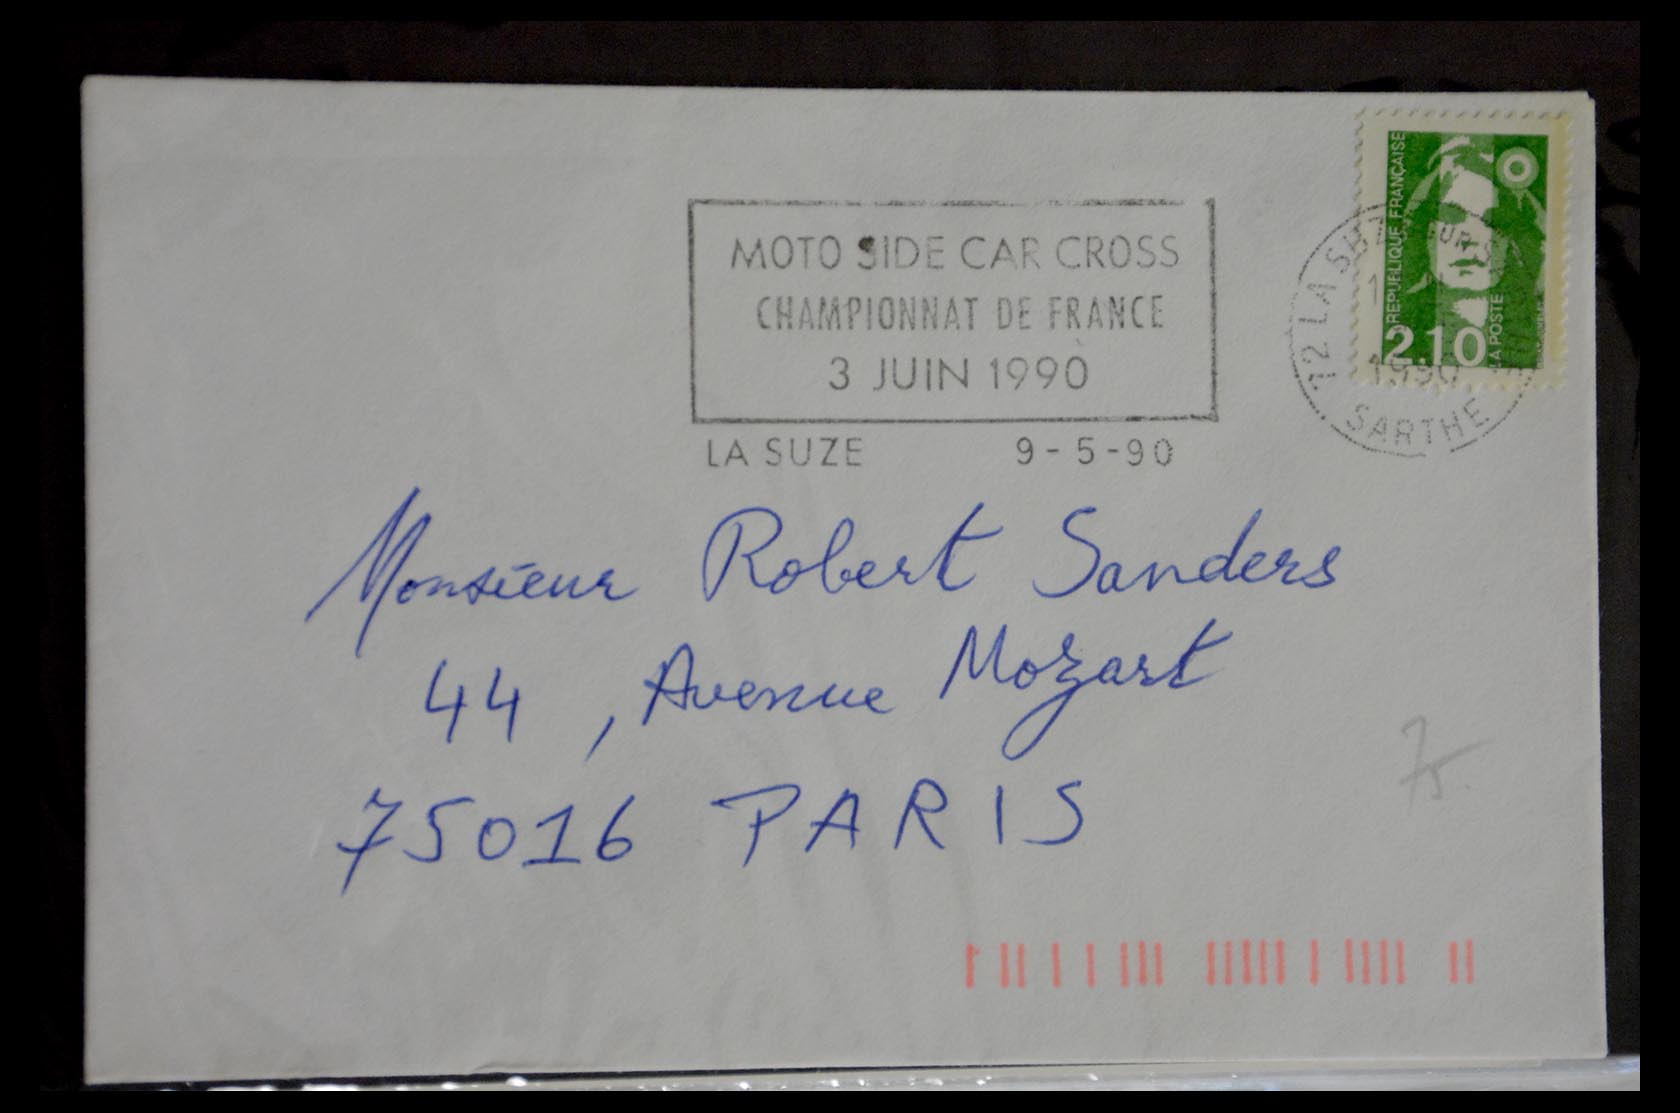 MOTO SIDE CAR CROSS
CHAMPIONNAT DE FRANCE
3 JUIN 1990
LA SUZE 9-5-90
REPUBLIQUE FRANÇAISE
2.10
LA POSTE
72 LA SUZE SUR
1990
SARTHE
Monsieur Robert Sanders
44, Avenue Mozart
75016 PARIS
75